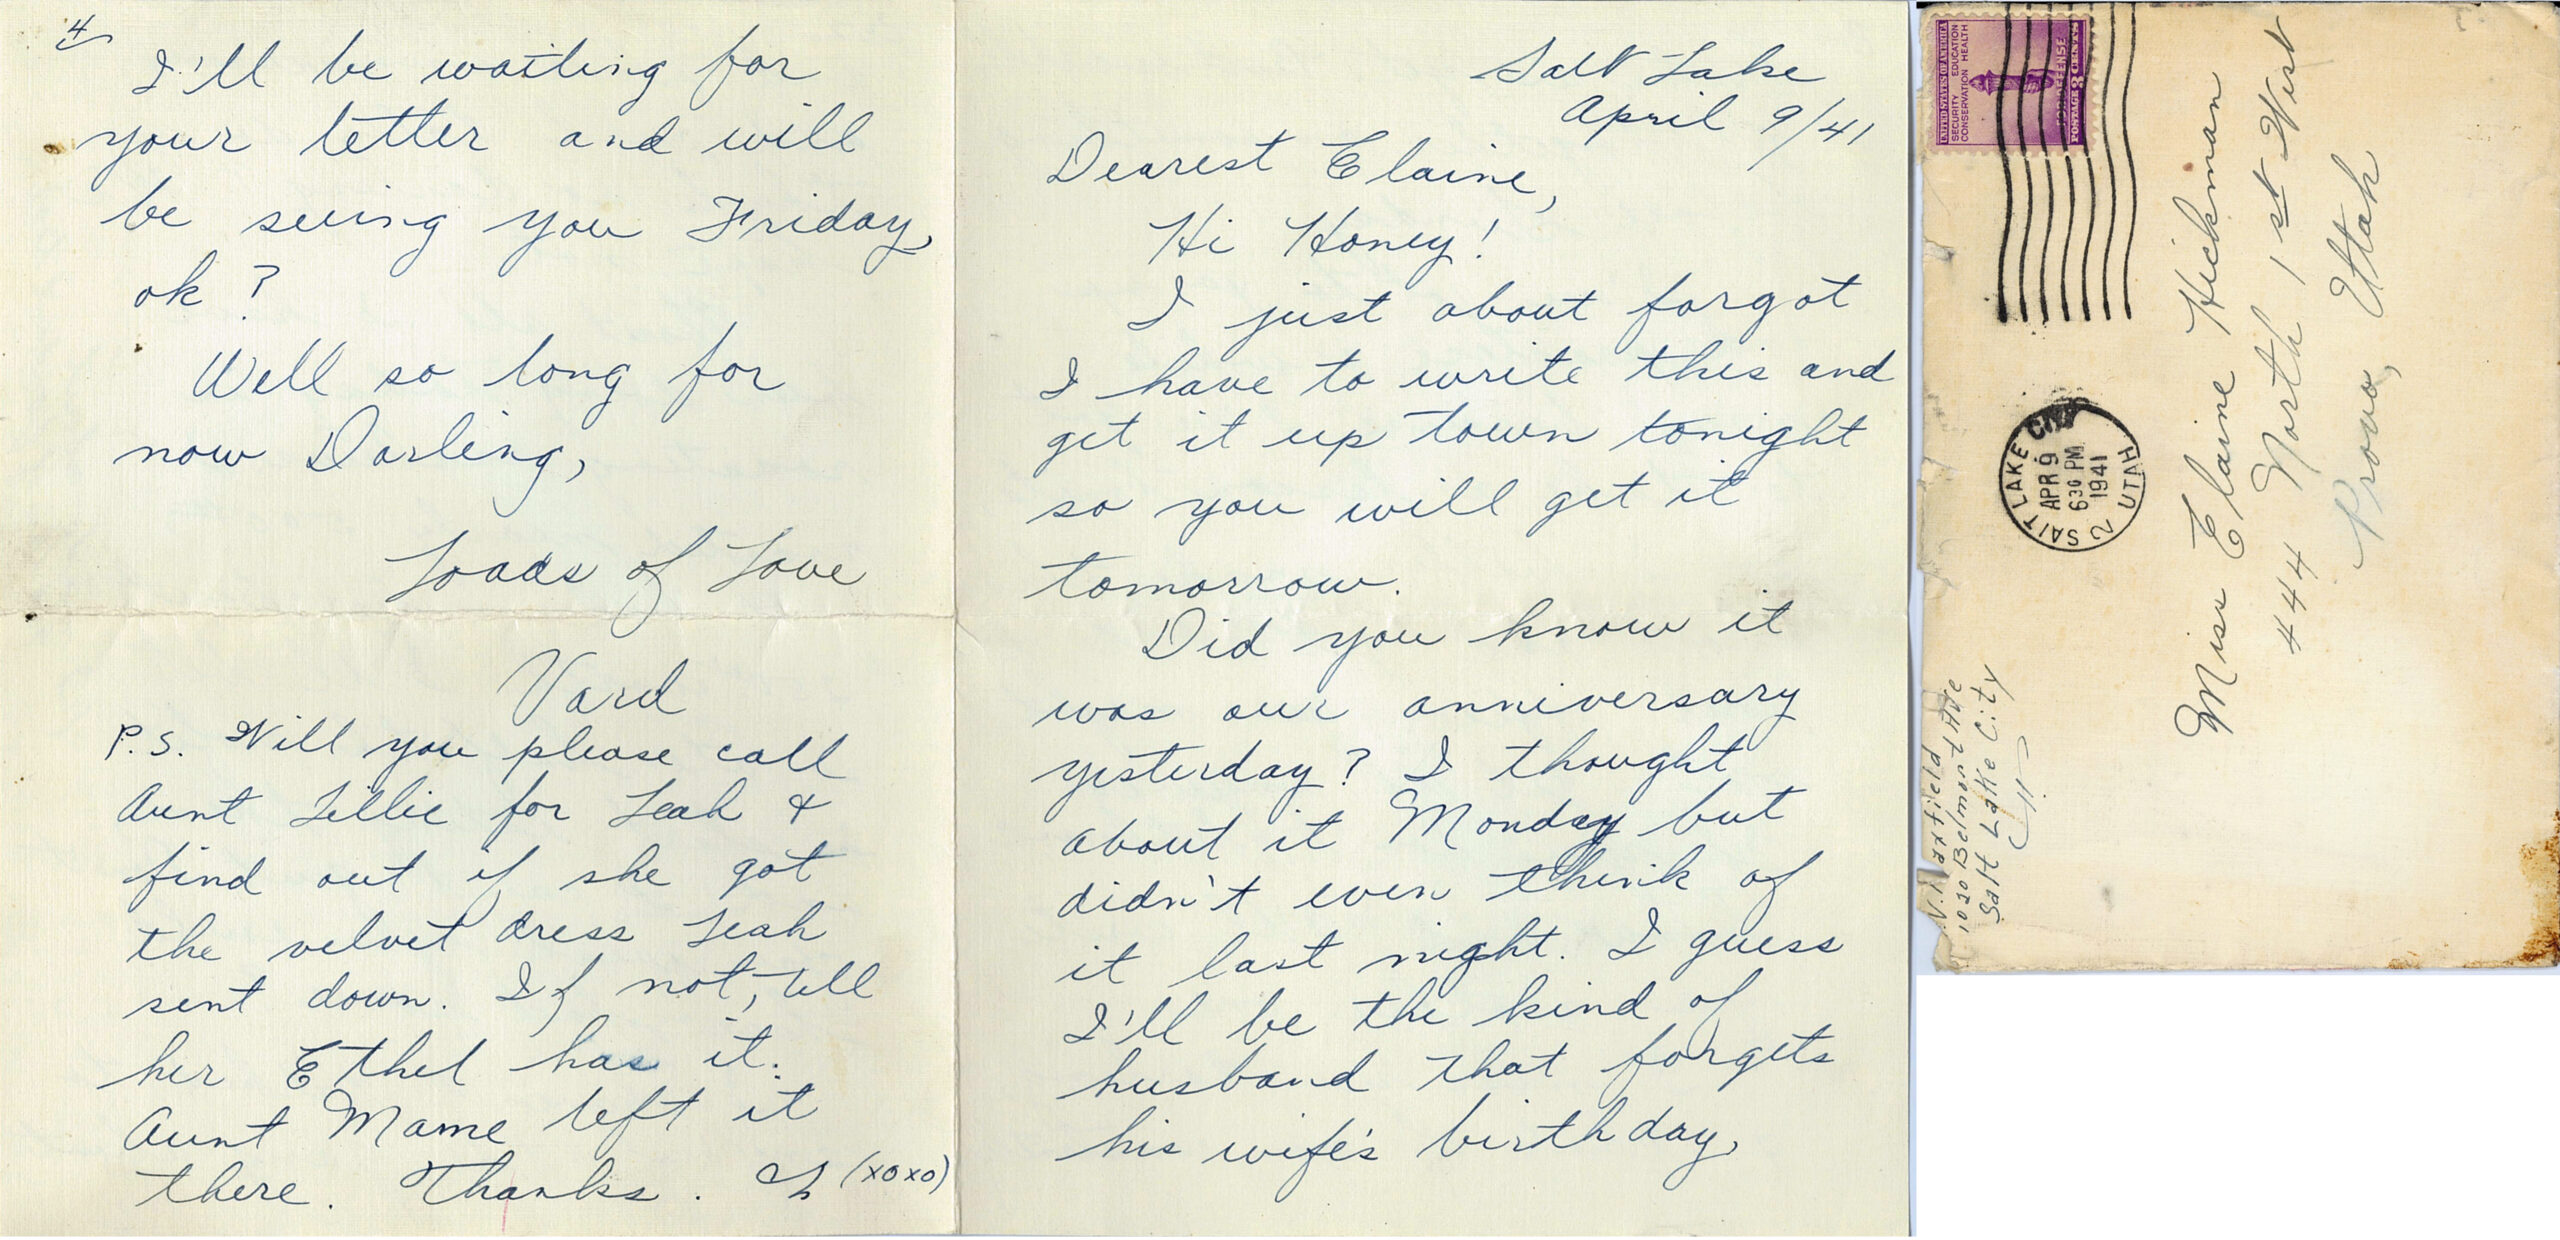 Salt Lake
April 9/41
Dearest Elaine,
Hi Honey!
I just about forgot
I have to write this and
get it up town tonight
so you will get it
tomorrow.
Did you know it
was our anniversary
yesterday? I thought
about it Monday but
didn't even think of
it last night. I guess
I'll be the kind of
husband that forgets
his wife's birthday,
4
I'll be waiting for
your letter and will
be seeing you Friday,
ok?
Well so long for
now Darling,
Loads of Love
Vard
P.S. Will you please call
Aunt Lillie for Leah &
find out if she got
the velvet dress Leah
sent down. If not, tell
her Ethel has it.
Aunt Mame left it
there. Thanks. (xoxo)
UNITED STATES OF AMERICA
SECURITY EDUCATION
CONSERVATION HEALTH
FOR DEFENSE
POSTAGE 3 CENTS
SALT LAKE CITY
APR 9
630 PM
1941
2 UTAH
Miss Elaine Hickman
444 North 1st West
Provo, Utah
V. Maxfield
1030 Belmont Ave
Salt Lake City